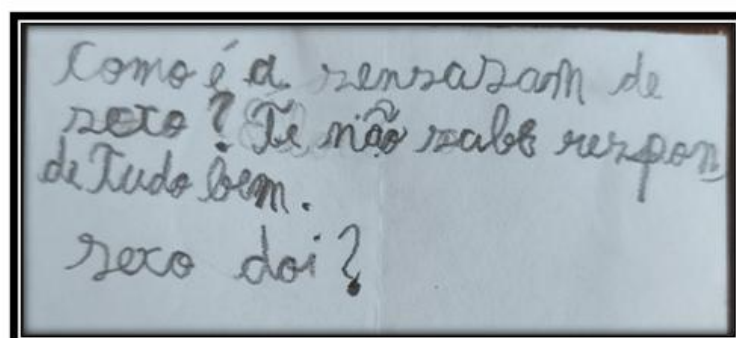 Como é a sensasam de
sexo? Se não sabe respon
de Tudo bem.
sexo doi?